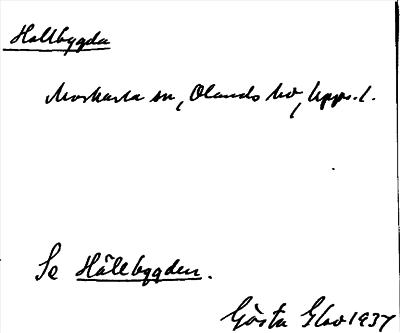 Hallbygda
Morkarla sn, Olands hd, Upps. l.
Se Hållbygden.
Gösta Elov 1937